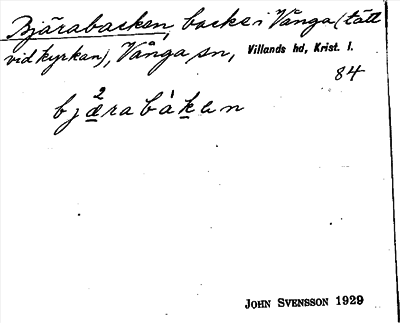 Bjärabacken, backe i Vånga (tätt
vid kyrkan), Vånga sn, Villands hd, Krist. l.
84
2
bjæraba̍ken
JOHN SVENSSON 1929